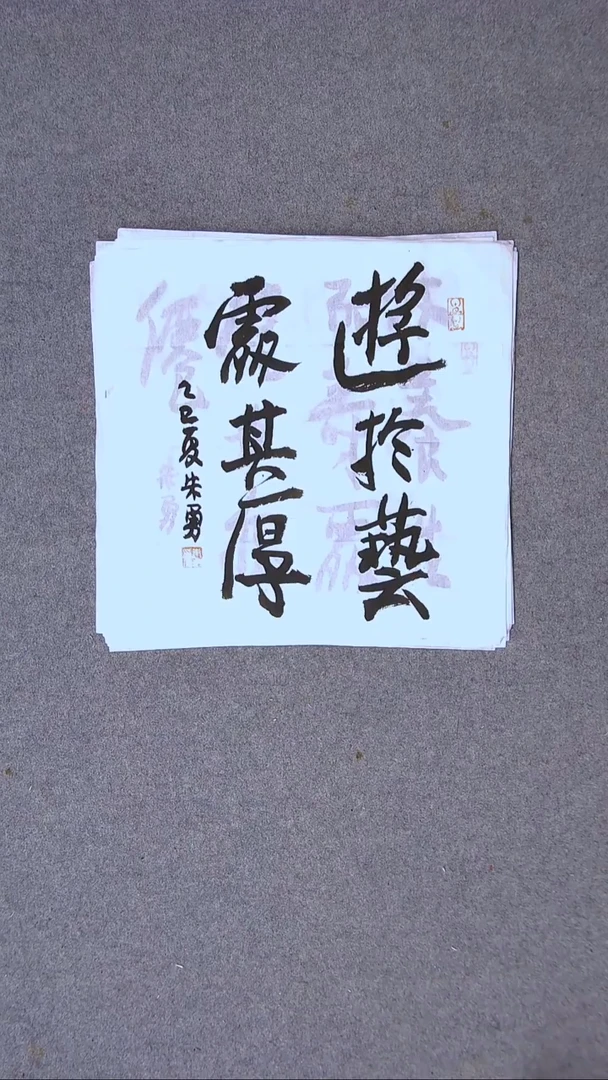 遊於藝
處其厚
乙巳夏朱勇